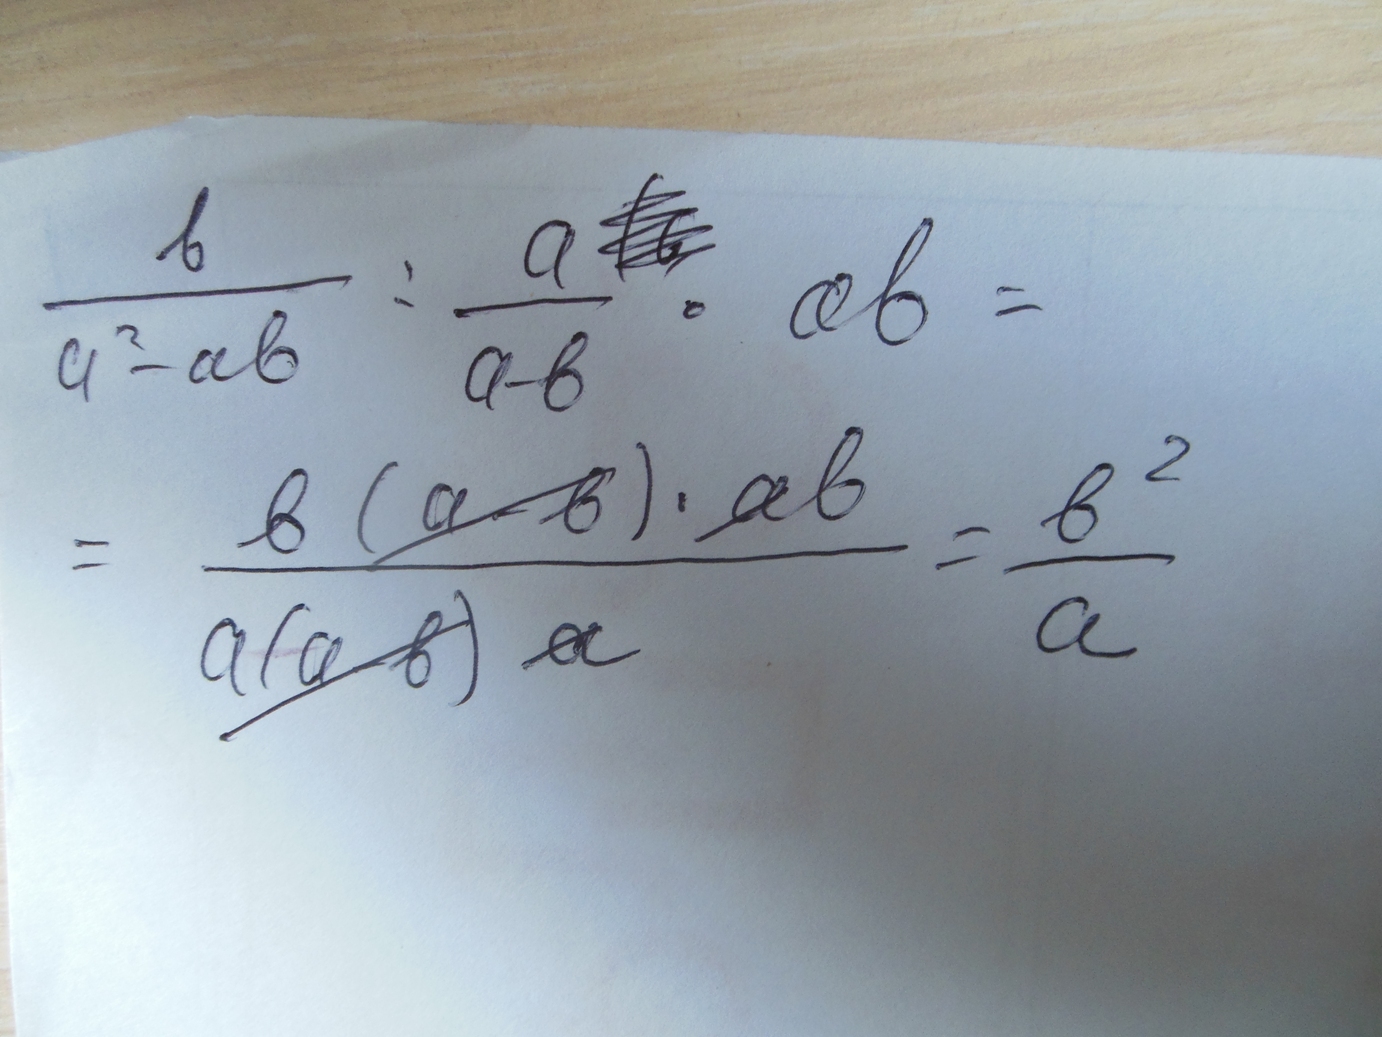 b/(a²-ab) : a/(a-b) · ab =
= b(a-b)·ab / a(a-b)a = b²/a